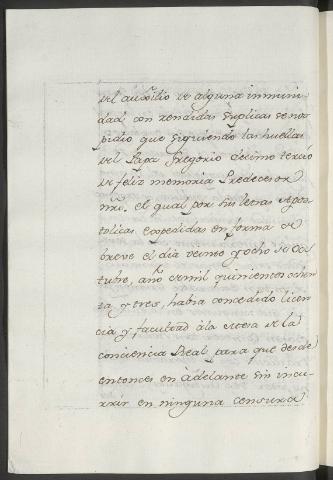 del auxilio de alguna inmuni
dad, con rendidas suplicas se nos
pidio que siguiendo las huellas
del Papa Gregorio decimo tercio
de feliz memoria Predecesor
nrõ. el qual por sus letras apos
tolicas expedidas en forma de
breve el dia veinte y ocho de Oc
tubre, año de mil quinientos ochen
ta y tres, habia concedido licen
cia y facultad á la
conciencia Real, para que desde
entonces en adelante sin incu
rrir en ninguna censura